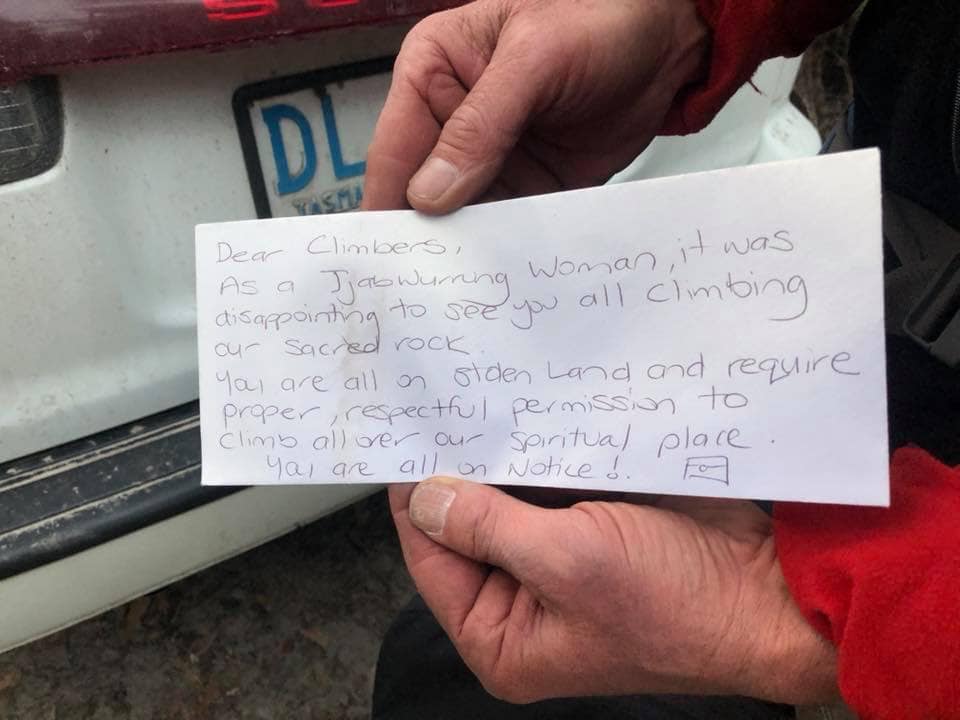 DL
TASMA
Dear Climbers,
As a Tjabwurrung Woman, it was
disappointing to see you all climbing
our sacred rock.
You are all on stolen Land and require
proper, respectful permission to
climb all over our spiritual place.
You are all on Notice!